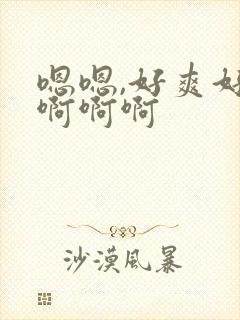 嗯嗯,好爽好
啊啊啊
沙漠风暴